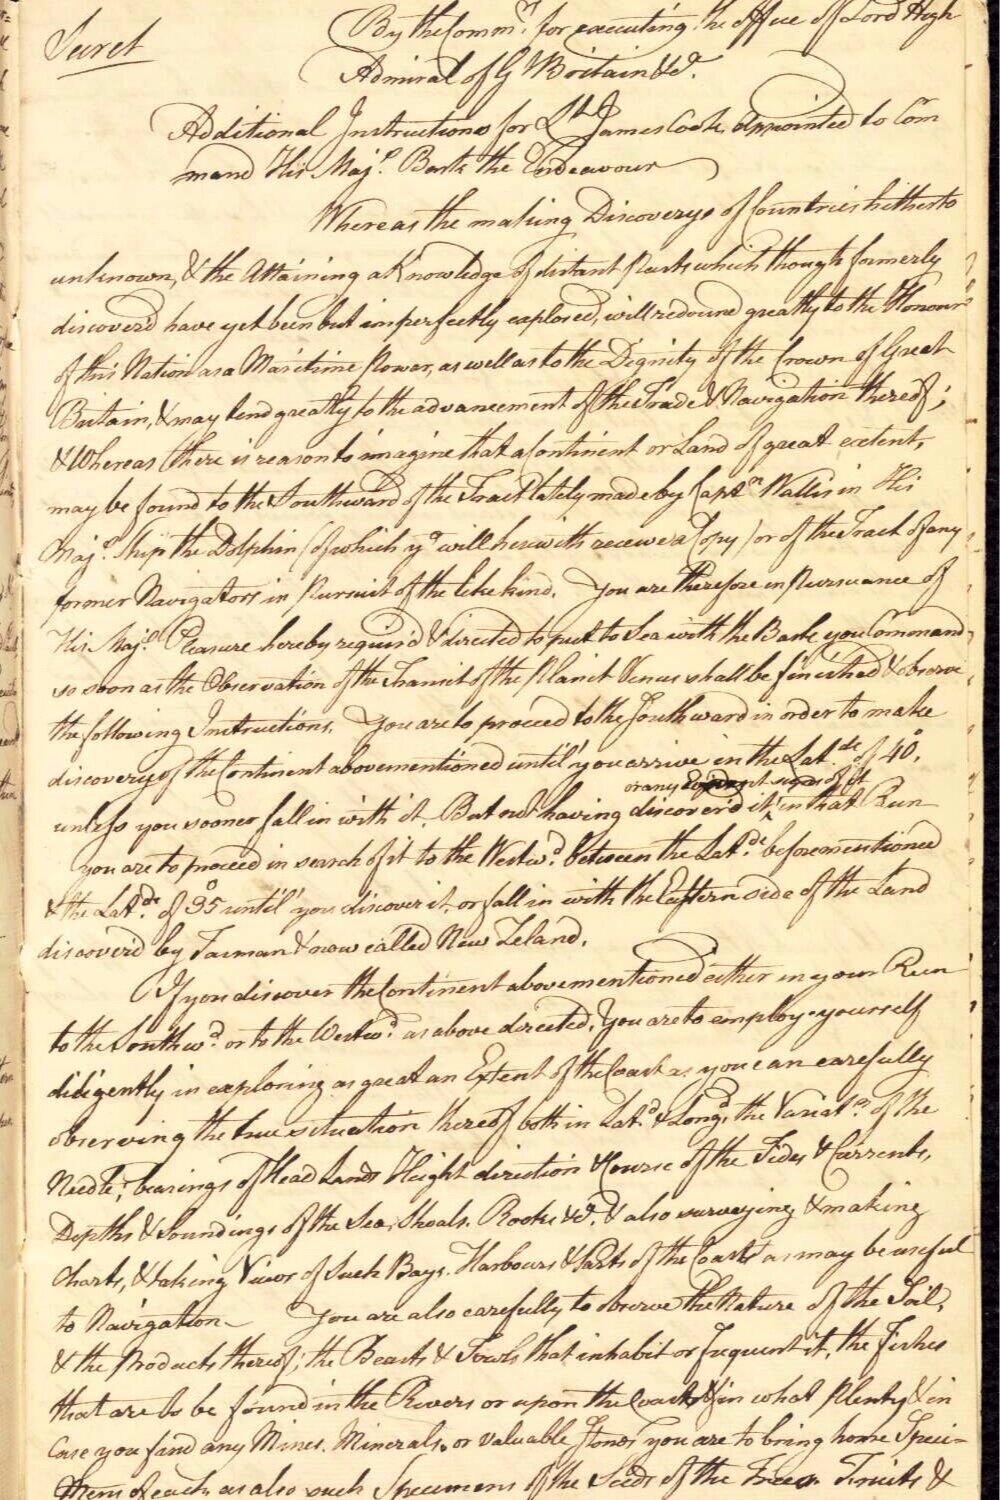 Secret
By the Comm.rs for executing the office of Lord High
Admiral of G Britain &c.a
Additional Instructions for L.t James Cook, appointed to Com
mand His Maj.s Bark the Endeavour
Whereas the making Discoverys of Countries hitherto
unknown, & the Attaining a Knowledge of distant Parts which though formerly
discover'd have yet been but imperfectly explored, will redound greatly to the Honour
of this Nation as a Maritime Power, as well as to the Dignity of the Crown of Great
Britain, & may tend greatly to the advancement of the Trade & Navigation thereof;
& Whereas there is reason to imagine that a Continent or Land of great extent,
may be found to the Southward of the Tract lately made by Capt.n Wallis in His
Maj.s Ship the Dolphin (of which y.o will herewith receive a Copy) or of the Tract of any
former Navigators in Pursuit of the like kind. You are therefore in Pursuance of
His Maj.s Pleasure hereby requir'd & directed to put to Sea with the Bark you Command
so soon as the Observation of the Transit of the Planet Venus shall be finished & observe
the following Instructions. You are to proceed to the Southward in order to make
discovery of the Continent abovementioned until' you arrive in the Lat.de of 40°,
unless you sooner fall in with it. But not having discover'd it ^ or any Evident signs of it in that Run
you are to proceed in search of it to the Westw.d between the Lat.de beforementioned
& the Lat.de of 35° until' you discover it, or fall in with the Eastern side of the Land
discover'd by Tasman & now called New Zeland.
If you discover the Continent abovementioned either in your Run
to the Southw.d or to the Westw.d as above directed, You are to employ yourself
diligently in exploring as great an Extent of the Coast as you can carefully
observing the true situation thereof both in Lat.d & Long.d, the Variat.n of the
Needle; bearings of Head Lands Height direction & Course of the Tides & Currents,
Depths & Soundings of the Sea, Shoals, Rocks &c.a & also surveying & making
Charts, & taking Views of Such Bays, Harbours & Parts of the Coasts as may be useful
to Navigation. You are also carefully to observe the Nature of the Soil,
& the Products thereof; the Beasts & Fowls that inhabit or frequent it, the Fishes
that are to be found in the Rivers or upon the Coasts & in what Plenty & in
Case you find any Mines, Minerals, or valuable Stones you are to bring home Speci-
mens of each, as also such Specimens of the Seeds of the Trees Fruits &